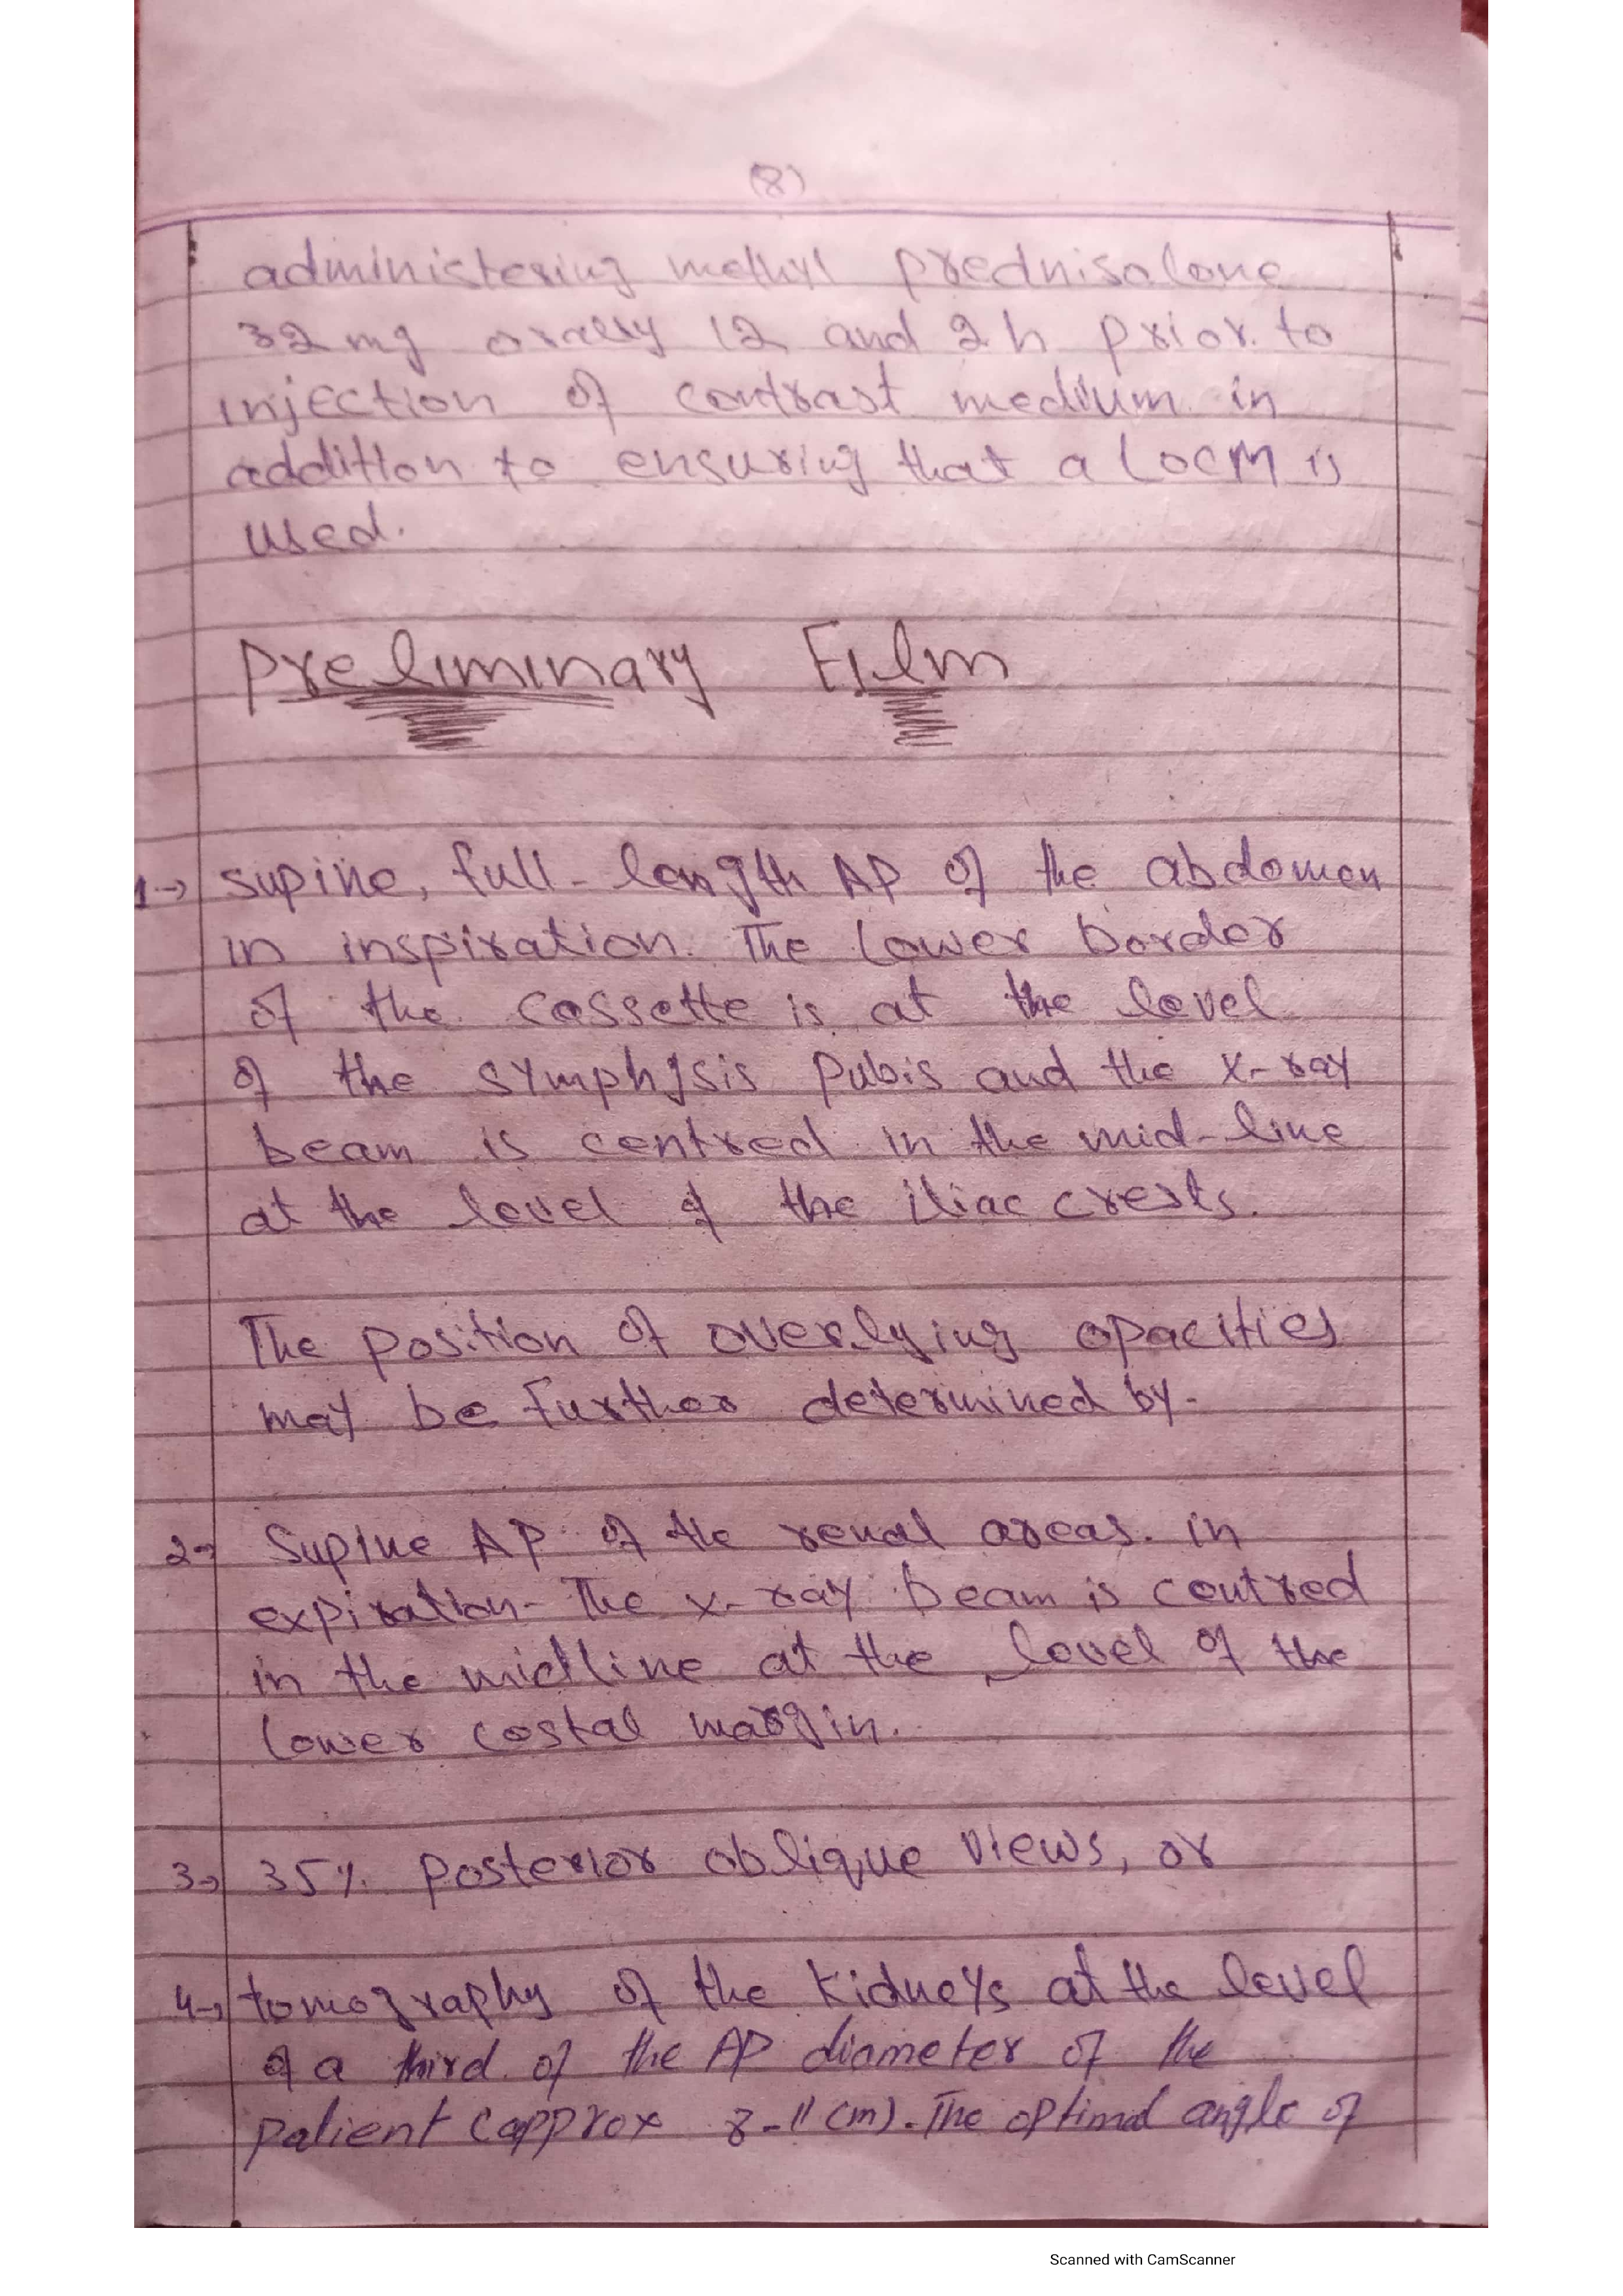 (8)
administering methyl prednisolone
32 mg orally 12 and 2 h prior to
injection of contrast medium in
addition to ensuring that a LOCM is
used.
Preliminary Film
1→ supine, full-length AP of the abdomen
in inspiration. The lower border
of the cassette is at the level
of the symphysis pubis and the x-ray
beam is centred in the mid-line
at the level of the iliac crests.
The position of overlying opacities
may be further determined by-
2→ Supine AP of the renal areas. in
expiration- The x-ray beam is centred
in the midline at the level of the
lower costal margin.
3→ 35%. posterior oblique views, or
4→ tomography of the kidneys at the level
of a third of the AP diameter of the
patient (approx 8-11 cm). The optimal angle of
Scanned with CamScanner